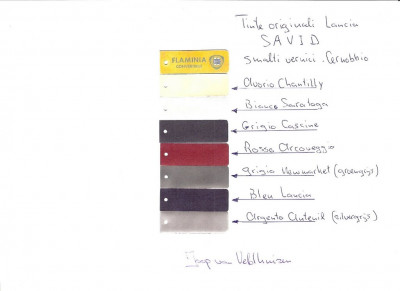 Tinte originali Lancia
SAVID
smalti vernici. Cernobbio
FLAMINIA
Avorio Chantilly
Bianco Saratoga
Grigio Cascine
Rosso Arcoveggio
Grigio Newmarket (groengrijs)
Bleu Lancia
Argento Auteuil (zilvergrijs)
Jaap van Veldhuizen